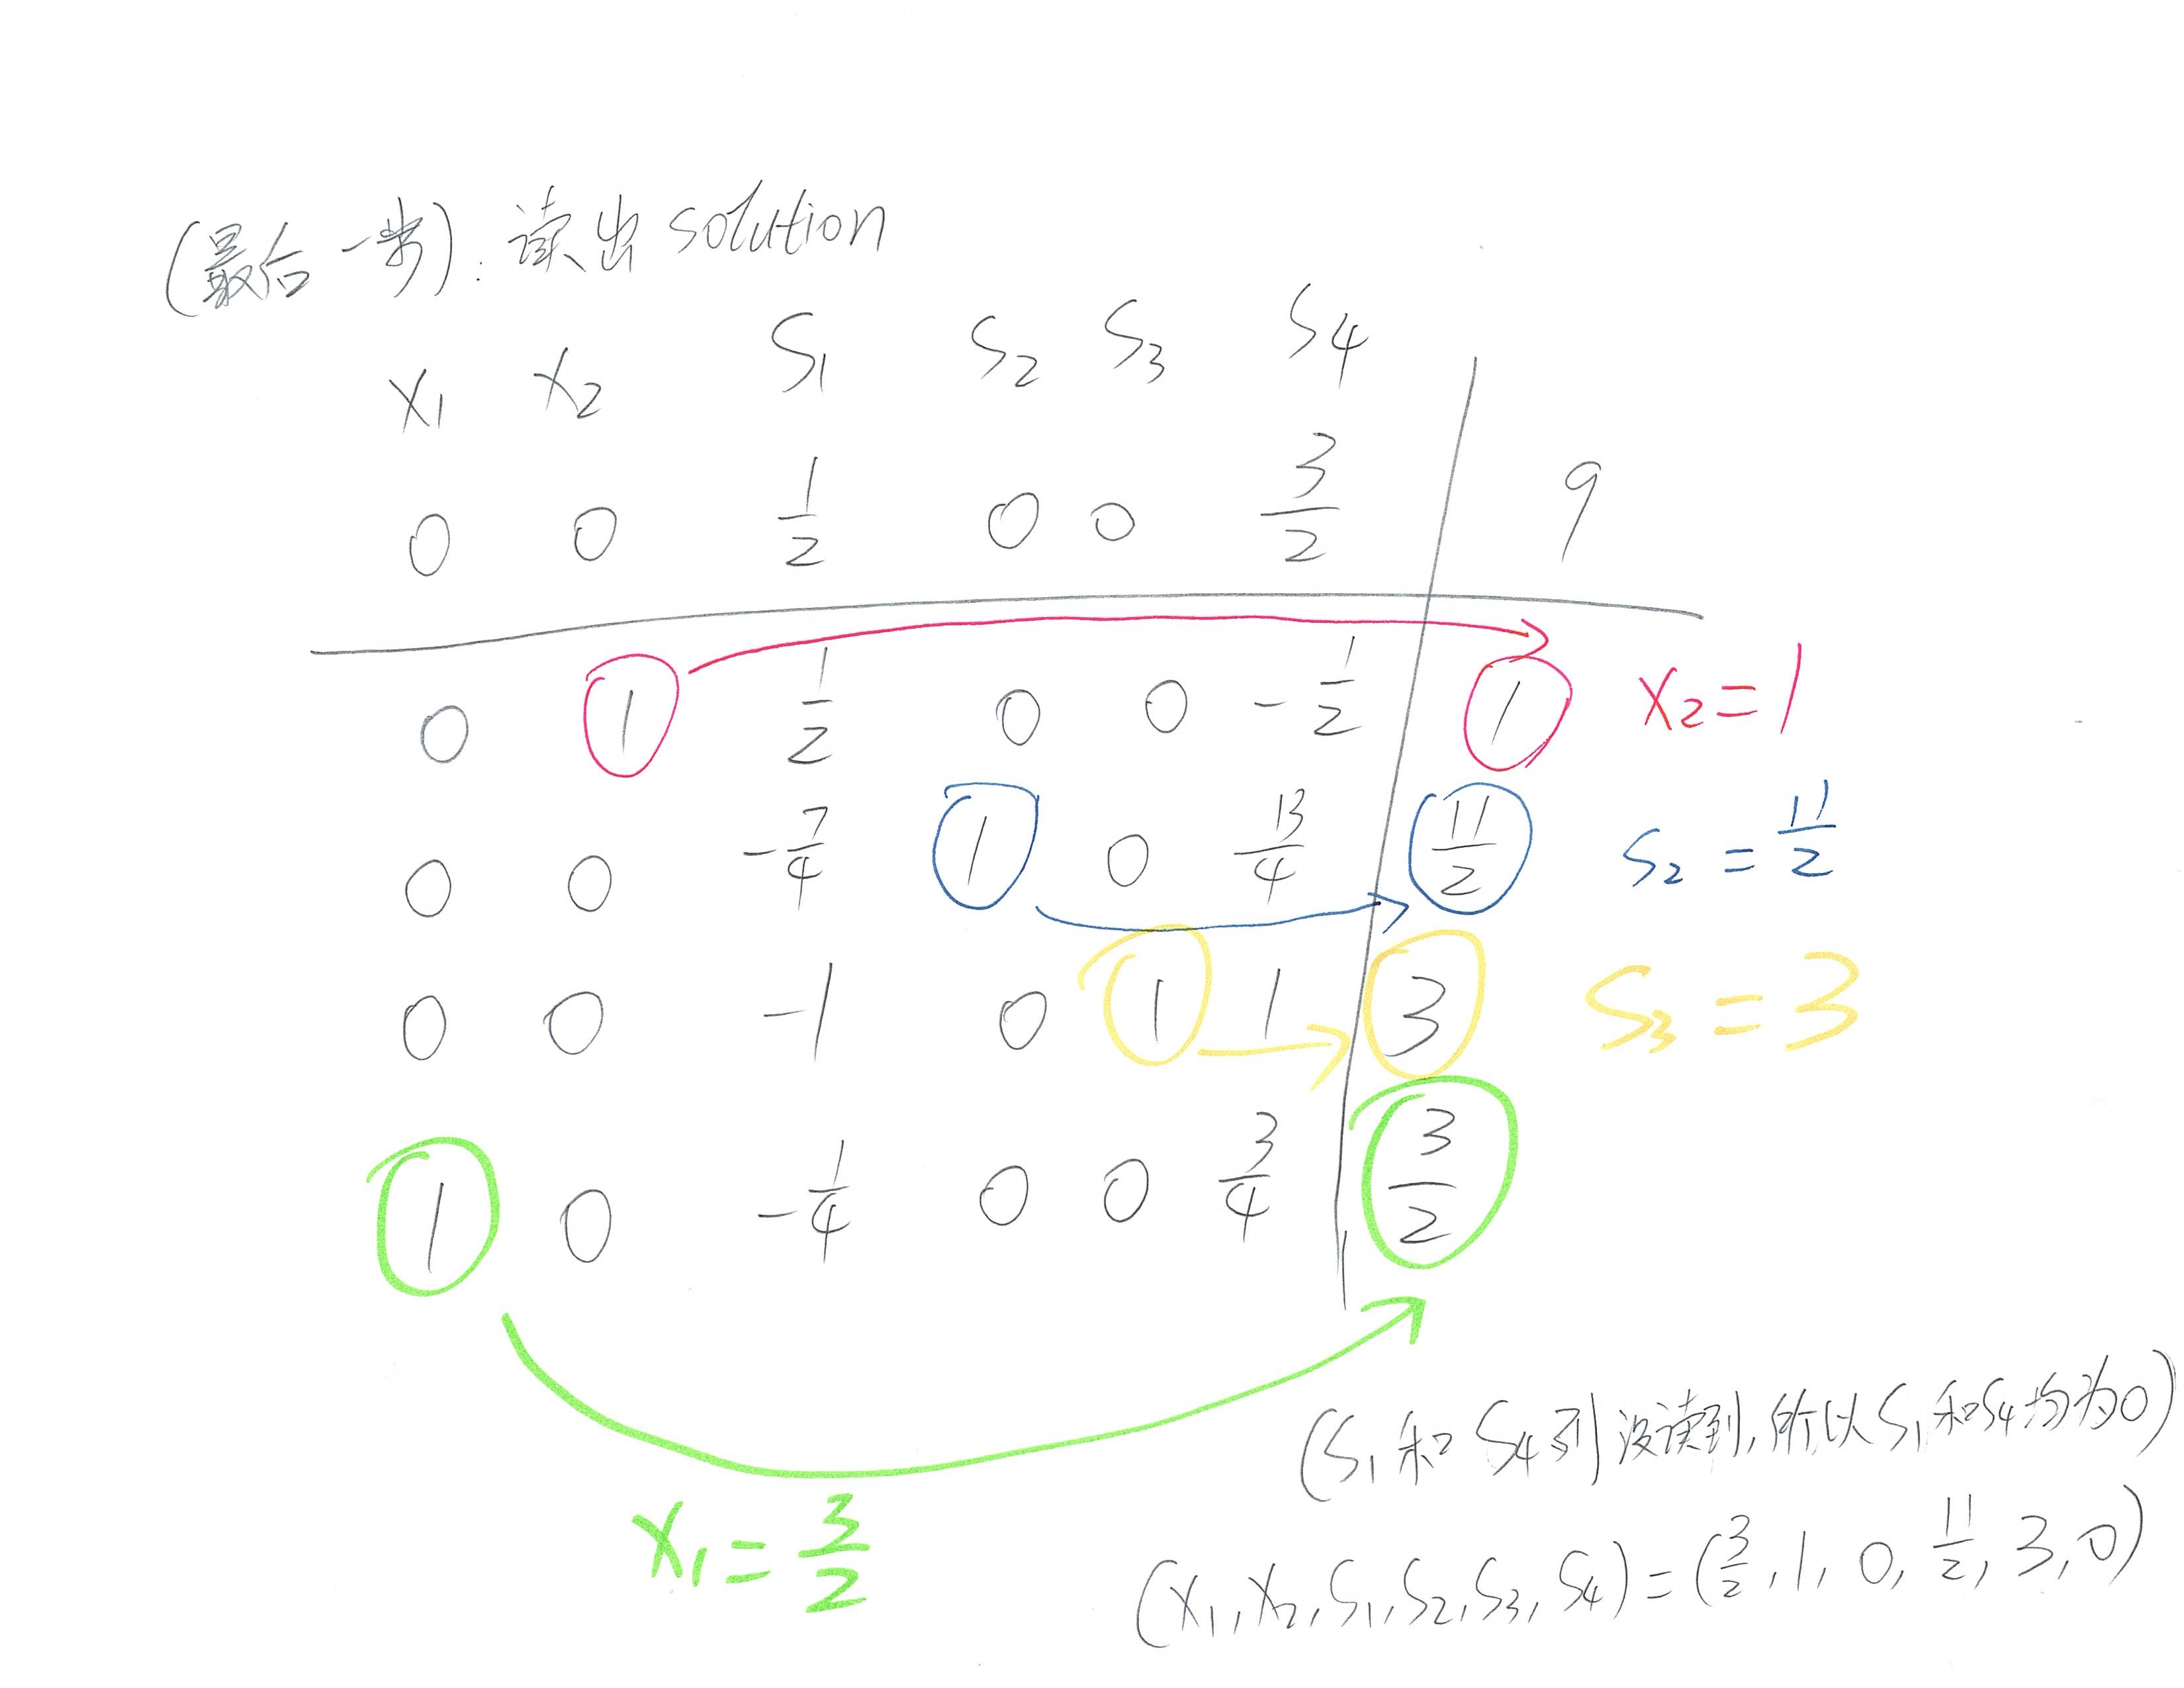 (最后一步): 读出 solution
x₁ x₂ S₁ S₂ S₃ S₄
0 0 1/2 0 0 3/2 9
0 1 1/2 0 0 -1/2 1 x₂=1
0 0 -7/4 1 0 13/4 11/2 S₂ = 11/2
0 0 -1 0 1 1 3 S₃ = 3
1 0 -1/4 0 0 3/4 3/2
x₁ = 3/2
(S₁和S₄列没读到,所以S₁和S₄均为0)
(x₁,x₂,S₁,S₂,S₃,S₄)=(3/2,1,0,11/2,3,0)